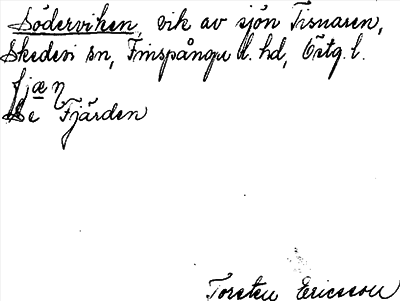 Söderviken, vik av sjön Tisnaren,
Skedevi sn, Finspånga l. hd, Östg. l.
fjæ̲ɳ
Se Fjärden
Torsten Ericsson